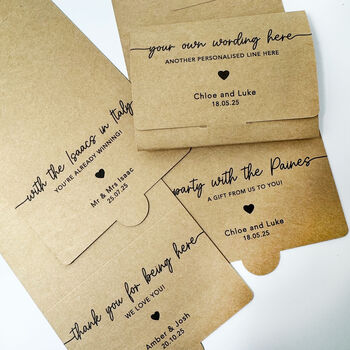 your own wording here
ANOTHER PERSONALISED LINE HERE
Chloe and Luke
18.05.25
with the Isaacs in Italy
YOU'RE ALREADY WINNING!
Mr & Mrs Isaac
25.07.25
party with the Paines
A GIFT FROM US TO YOU!
Chloe and Luke
18.05.25
thank you for being here
WE LOVE YOU!
Amber & Josh
20.10.25